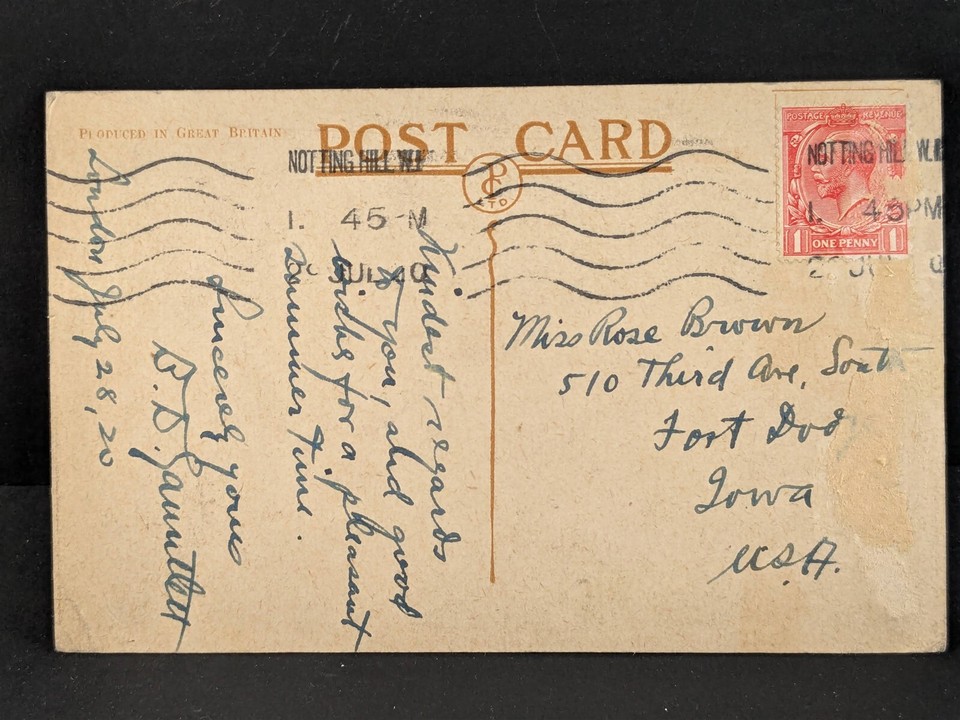 PRODUCED IN GREAT BRITAIN
POST CARD
LTD.
NOTTING HILL W.
1. 45 M
28 JUL 20
NOTTING HILL W.
1. 45 PM
POSTAGE REVENUE
1 ONE PENNY 1
Kindest regards
to you, and good
wishes for a pleasant
summer time.
Sincerely yours
London July 28, 20
Miss Rose Brown
510 Third Ave, South
Fort Dod
Iowa
U.S.A.